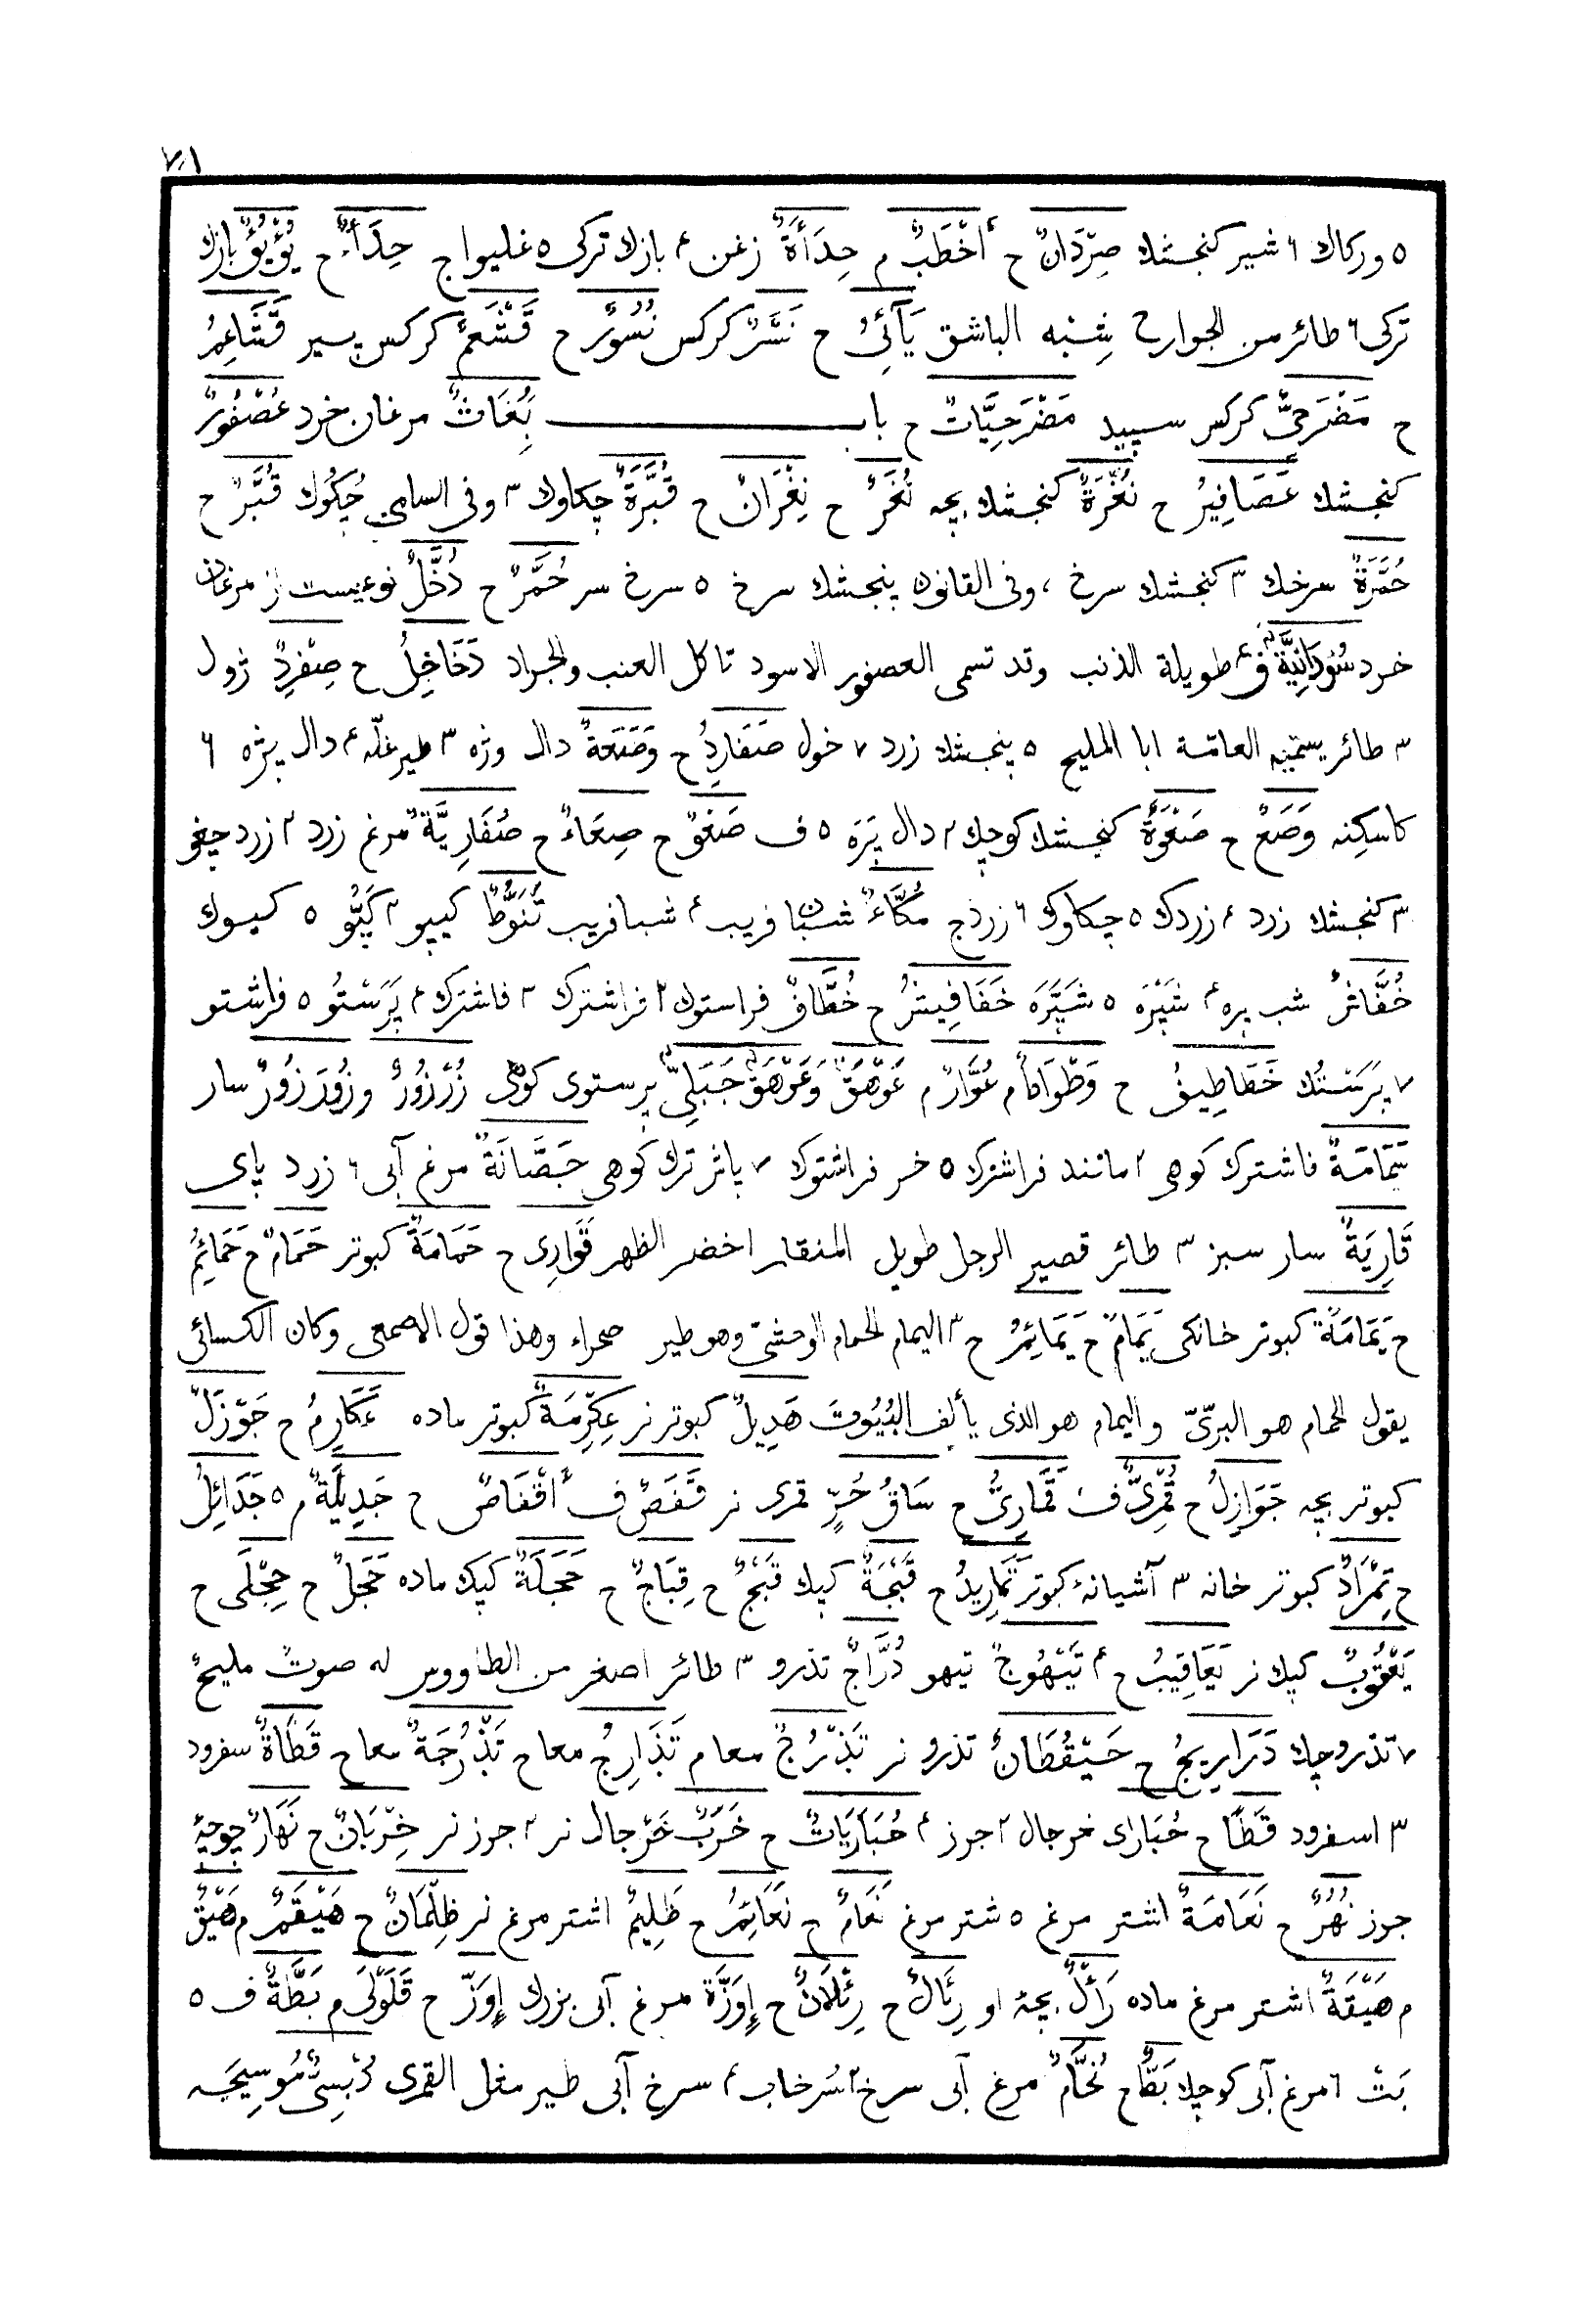 ٧٠١
٥ وركاك ٦ شير كنجشك صِرْدَانٌ ح أَخْطَبُ م حِدَأَةٌ زغن ٤ بازك تركى ٥ غليواج حِدَأٌ ح يُؤْيُؤٌ بازك
تركى ٦ طائر من الجوارح شِبْه الباشق يَآئِئُ ح نَسْرٌ كركس نُسُورٌ ح قَشْعَمٌ كركس پير قَشَاعِمُ
ح مَضْرَحِىٌّ كركس سپيد مَضْرَحِيَّاتٌ ح باب بُغَاثٌ مرغان خرد عُصْفُورٌ
كنجشك عَصَافِيرُ ح نُغَرَةٌ كنجشك بچه نُغَرٌ ح نِغْرَانٌ ح قُبَّرَةٌ چكاوك ٣ وفى السامى چَكُوك قُبَّرٌ ح
حُمَّرَةٌ سرخك ٣ كنجشك سرخ ، وفى القانون پنجشك سرخ ٥ سرخ سر حُمَّرٌ ح دُخَّلٌ نوعيست از مرغان
خرد سُودَانِيَّةٌ ف ٤ طويلة الذنب وقد تسمى العصفور الاسود تاكل العنب والجراد دَخَاخِلُ ح صِفْرِدٌ ژول
٣ طائر يسميه العامّة ابا المليح ٥ پنجشك زرد ٧ خول صَفَارِدُ ح وَصَعَةٌ دال وژه ٣ طيرغلّه ٤ دال پژه ٦
كاسكِنه وَصَعٌ ح صَعْوَةٌ كنجشك كوچك ٢ دال پَرَه ٥ ف صَعْوٌ ح صِعَاءٌ ح صُفَارِيَّةٌ مرغ زرد ٢ زرد چغو
٣ كنجشك زرد ٤ زردك ٥ چكاوك ٦ زردج مُكَّاءٌ شبان فريب ٤ شبافريب تُنَوِّطٌ كيپو ٣ كَپُّو ٥ كيسوك
خُفَّاشٌ شب پره ٤ شَپْرَه ٥ شَپَّرَه خَفَافِيشُ ح خُطَّافٌ فراستوك ٢ فراشترك ٣ فاشترك ٤ پَرَسْتُو ٥ فراشتو
٧ پَرَسْتُك خَطَاطِيفُ ح وَطْوَاطٌ م عُوَّارٌ م عَوْهَقٌ وَعَوْهَقٌ جَبَلِىٌّ پرستوى كوهى زُرْزُورٌ وزُرْزُورٌ سار
سَمَامَةٌ فاشترك كوهى ٢ مانند فراشترك ٥ خر فراشتوك ٧ پاشترك كوهى حَصَّانَةٌ مرغ آبى ٦ زرد پاى
قَارِيَةٌ سار سبز ٣ طائر قصير الرجل طويل المنقار اخضر الظهر قَوَارِى ح حَمَامَةٌ كبوتر حَمَامٌ ح حَمَائِمُ
ح يَمَامَةٌ كبوتر خانكى يَمَامٌ ح يَمَائِمُ ح ٣ اليمام الحمام الوحشىّ وهو طير صحراء وهذا قول الاصمعى وكان الكسائى
يقول الحمام هو البرّىّ واليمام هو الذى يألف البُيُوتَ هَدِيلٌ كبوتر نر عِكْرِمَةٌ كبوتر ماده عَكَارِمُ ح جَوْزَلٌ
كبوتر بچه جَوَازِلُ ح قُمْرِىٌّ ف قَمَارِىُّ ح سَاقُ حُرٍّ قمرى نر قَفَصٌ ف أَقْفَاصٌ ح جَدِيلَةٌ م ٥ جَدَائِلُ
ح تِمْرَادٌ كبوتر خانه ٣ آشيانهٔ كبوتر تَمَارِيدُ ح قَبْجَةٌ كپك قَبْجٌ ح قِبَاجٌ ح حَجَلَةٌ كپك ماده حَجَلٌ ح حِجْلَى ح
يَعْقُوبٌ كپك نر يَعَاقِيبُ ح ٤ تَيْهُوجٌ تيهو دُرَّاجٌ تذرو ٣ طائر اصغر من الطاووس له صوتٌ مليحٌ
٧ تذروچك دَرَارِيجُ ح حَيْقُطَانٌ تذرو نر تَذْرُجٌ معا م تَذَارِجُ معا ح تَذْرُجَةٌ معا ح قَطَاةٌ سفرود
٣ اسفرود قَطًا ح حُبَارَاى خرجال ٢ جوز ٤ حُبَارَيَاتٌ ح خَرَبٌ خَرْجال نر ٢ جوز نر خِرْبَانٌ ح نَهَارٌ چوچهٔ
جوز نُهُرٌ ح نَعَامَةٌ اشتر مرغ ٥ شتر مرغ نَعَامٌ ح نَعَائِمُ ح ظَلِيمٌ اشتر مرغ نر ظِلْمَانٌ ح هَيْقَمٌ م هَيْقٌ
م هَيْقَةٌ اشتر مرغ ماده رَأْلٌ بچهٔ او رِئَالٌ ح رِئْلَانٌ ح إِوَزَّةٌ مرغ آبى بزرك إِوَزٌّ ح قَلَوْلَى م بَطَّةٌ ف ٥
بَتْ ٦ مرغ آبى كوچك بَطٌّ ح نُحَامٌ مرغ آبى سرخ ٢ سُرخاب ٤ سرخ آبى طير مثل القمرى دُبْسِىٌّ مُوسِيجَه